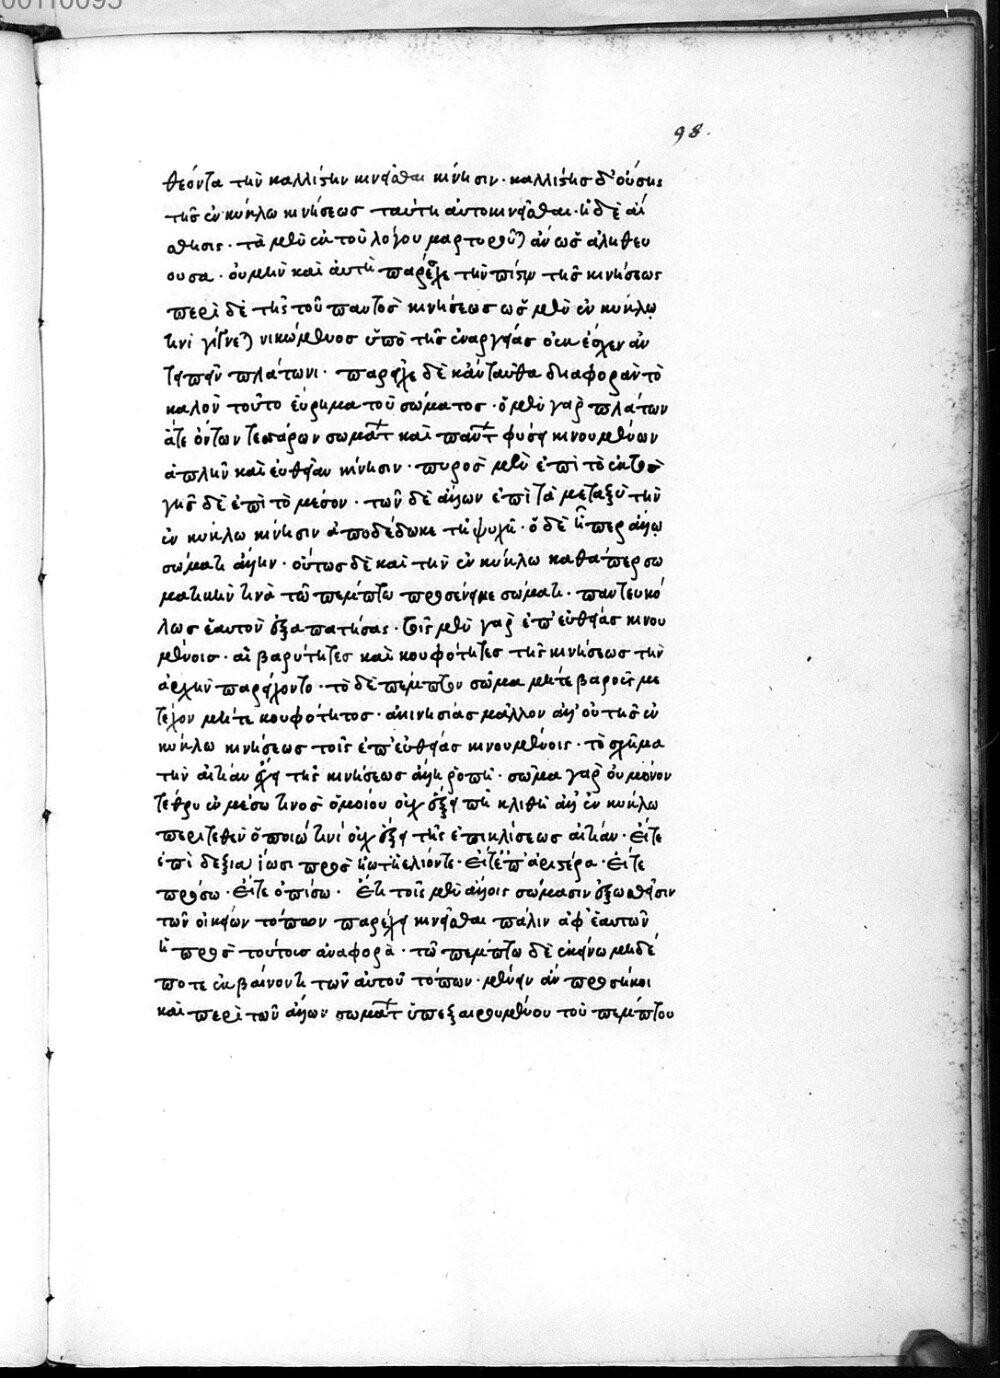 00110095
98.
θεόντα τὴν καλλίστην κινεῖσθαι κίνησιν · καλλίστης δ' οὔσης
τῆς ἐν κύκλω κινήσεως ταύτη αὐτοκινεῖσθαι · ἡ δὲ αἴ
σθησις · τὰ μὲν ἐκ τοῦ λόγου μαρτυρεῖται ἂν ὡς ἀληθεύ
ουσα · οὐ μὴν καὶ αὐτὴ παρέσχε τὴν πίστιν τῆς κινήσεως
περὶ δὲ τῆς τοῦ παντὸς κινήσεως ὡς μὲν ἐν κύκλῳ
τινὶ γίγνεται νικώμενος ὑπὸ τῆς ἐναργείας οὐκ ἔσχεν ἀν
τειπεῖν πλάτωνι · παρεῖχε δὲ κἀνταῦθα διαφορὰν τὸ
καλὸν τοῦτο εὕρημα τοῦ σώματος · ὁ μὲν γὰρ πλάτων
ἅτε ὄντων τεσσάρων σωμάτων καὶ πάντων φύσει κινουμένων
ἁπλῆν καὶ εὐθεῖαν κίνησιν · πυρὸς μὲν ἐπὶ τὸ ἐκτὸς
γῆς δὲ ἐπὶ τὸ μέσον · τῶν δὲ ἄλλων ἐπὶ τὰ μεταξὺ τὴν
ἐν κύκλω κίνησιν ἀποδέδωκε τῆ ψυχῆ · ὁ δὲ ἧπερ ἄλλῳ
σώματι ἄλλην · οὕτως δὲ καὶ τὴν ἐν κύκλω καθάπερ σω
ματικήν τινα τῶ πέμπτω προσένειμε σώματι · πάντ' εὐκό
λως ἑαυτὸν ἐξαπατήσας · τοῖς μὲν γὰρ ἐπ' εὐθείας κινου
μένοις · αἱ βαρύτητες καὶ κουφότητες τῆς κινήσεως τὴν
ἀρχὴν παρείχοντο · τὸ δὲ πέμπτον σῶμα μήτε βάρους με
τέχον μήτε κουφότητος · ἀκινησίας μᾶλλον ἀλλ' οὐ τῆς ἐν
κύκλω κινήσεως τοῖς ἐπ' εὐθείας κινουμένοις · τὸ σχῆμα
τὴν αἰτίαν ἔχει τῆς κινήσεως ἀλλ' ἡ ῥοπή · σῶμα γὰρ οὐ μόνον
τεθὲν ἐν μέσω τινὸς ὁμοίου οὐχ ἕξει πῆ κλιθῆ ἀλλ' ἐν κύκλω
περιτεθὲν ὁποιῳτινὶ οὐχ ἕξει τῆς ἐπικλίσεως αἰτίαν · εἴτε
ἐπὶ δεξιὰ ἴωσι πρὸς
πρόσω · εἴτε ὀπίσω · ἔτι τοῖς μὲν ἄλλοις σώμασιν ἐξωσθεῖσιν
τῶν οἰκείων τόπων παρέχει κινεῖσθαι πάλιν ἀφ' ἑαυτῶν
ἡ πρὸς τούτοις ἀναφορά · τῶ πέμπτω δὲ ἐκείνω μηδέ
ποτε ἐκβαίνοντι τῶν αὑτοῦ τόπων · μένειν ἂν προσήκοι
καὶ περὶ τῶν ἄλλων σωμάτων ὑπεξαιρουμένου τοῦ πέμπτου